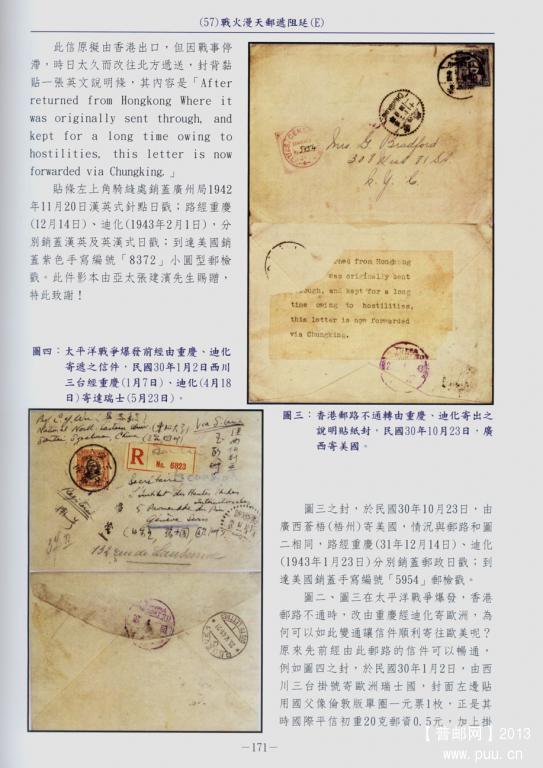 (57)戰火漫天郵遞阻延(E)
此信原擬由香港出口，但因戰事停
滯，時日太久而改往北方遞送，封背黏
貼一張英文說明條，其內容是「After
returned from Hongkong Where it
was originally sent through, and
kept for a long time owing to
hostilities, this letter is now
forwarded via Chungking.」
貼條左上角騎縫處銷蓋廣州局1942
年11月20日漢英式針點日戳；路經重慶
(12月14日)、迪化(1943年2月1日)，分
別銷蓋漢英及英漢式日戳；到達美國銷
蓋紫色手寫編號「8372」小圓型郵檢
戳。此件影本由亞太張建濱先生賜贈，
特此致謝！
圖四：太平洋戰爭爆發前經由重慶、迪化
寄遞之信件，民國30年1月2日西川
三台經重慶(1月7日)、迪化(4月18
日)寄達瑞士(5月23日)。
Mrs G. Bradford
308 West 81 St
N. Y. C.
rned from Hongkong
was originally sent
through, and kept for a long
time owing to hostilities,
this letter is now forwarded
via Chungking.
圖三：香港郵路不通轉由重慶、迪化寄出之
說明貼紙封，民國30年10月23日，廣
西寄美國。
National North-Eastern Univ.
Santai, Szechuan, China
Via Siberia
R
No. 6823
Secrétaire
Institut des Hautes Études
Internationales
5 Promenade du Pin
Genève
132 rue de Lausanne
圖三之封，於民國30年10月23日，由
廣西蒼梧(梧州)寄美國，情況與郵路和圖
二相同，路經重慶(31年12月14日)、迪化
(1943年1月23日)分別銷蓋郵政日戳；到
達美國銷蓋手寫編號「5954」郵檢戳。
圖二、圖三在太平洋戰爭爆發，香港
郵路不通時，改由重慶經迪化寄歐洲，為
何可以如此變通讓信件順利寄往歐美呢？
原來先前經由此郵路的信件可以暢通，
例如圖四之封，於民國30年1月2日，由西
川三台掛號寄歐洲瑞士國，封面左邊貼
用國父像倫敦版單圈一元票1枚，正是其
時國際平信初重20克郵資0.5元，加上掛
－171－
【普邮网】2013
www.puu.cn